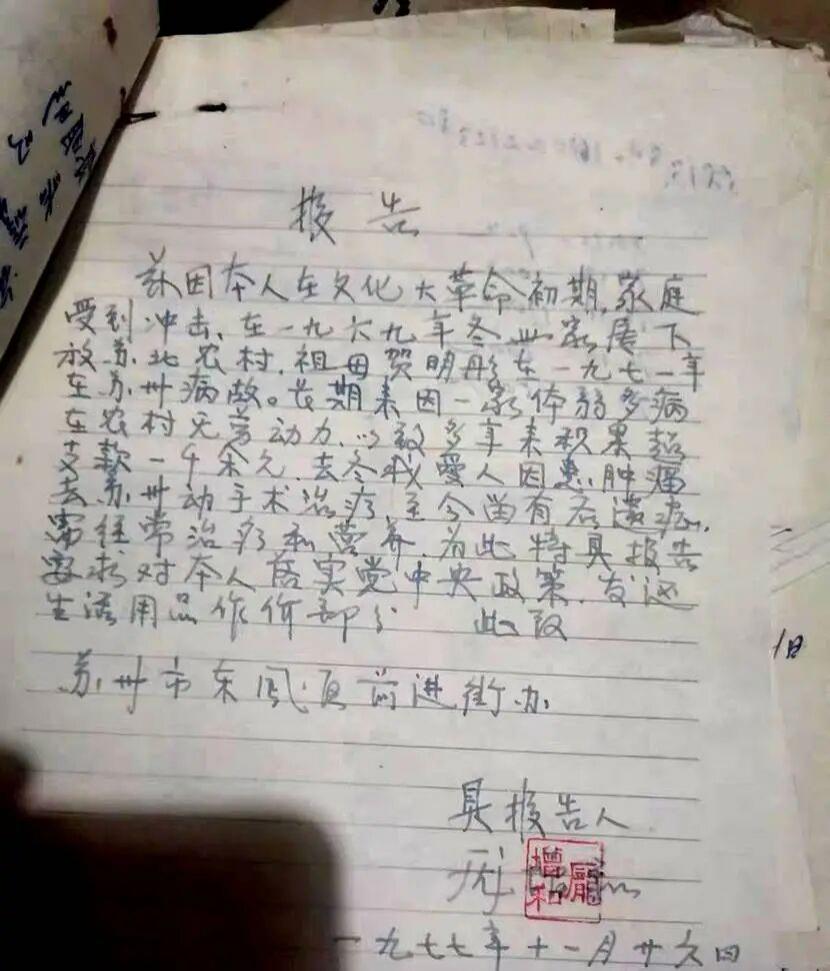 报告
兹因本人在文化大革命初期,家庭
受到冲击,在一九六九年冬此家属下
放苏北农村,祖母贺明彤在一九七一年
在苏州病故。长期来因一家体弱多病
在农村无劳动力,以致多年来积累超
支款一千余元,去冬我爱人因患肿瘤
去苏州动手术治疗,至今尚有后遗症,
需经常治疗和营养,为此特具报告
要求对本人落实党中央政策,发还
生活用品作价部分 此致
苏州市东风区前进街办
具报告人
庞增和
一九七七年十一月廿六日